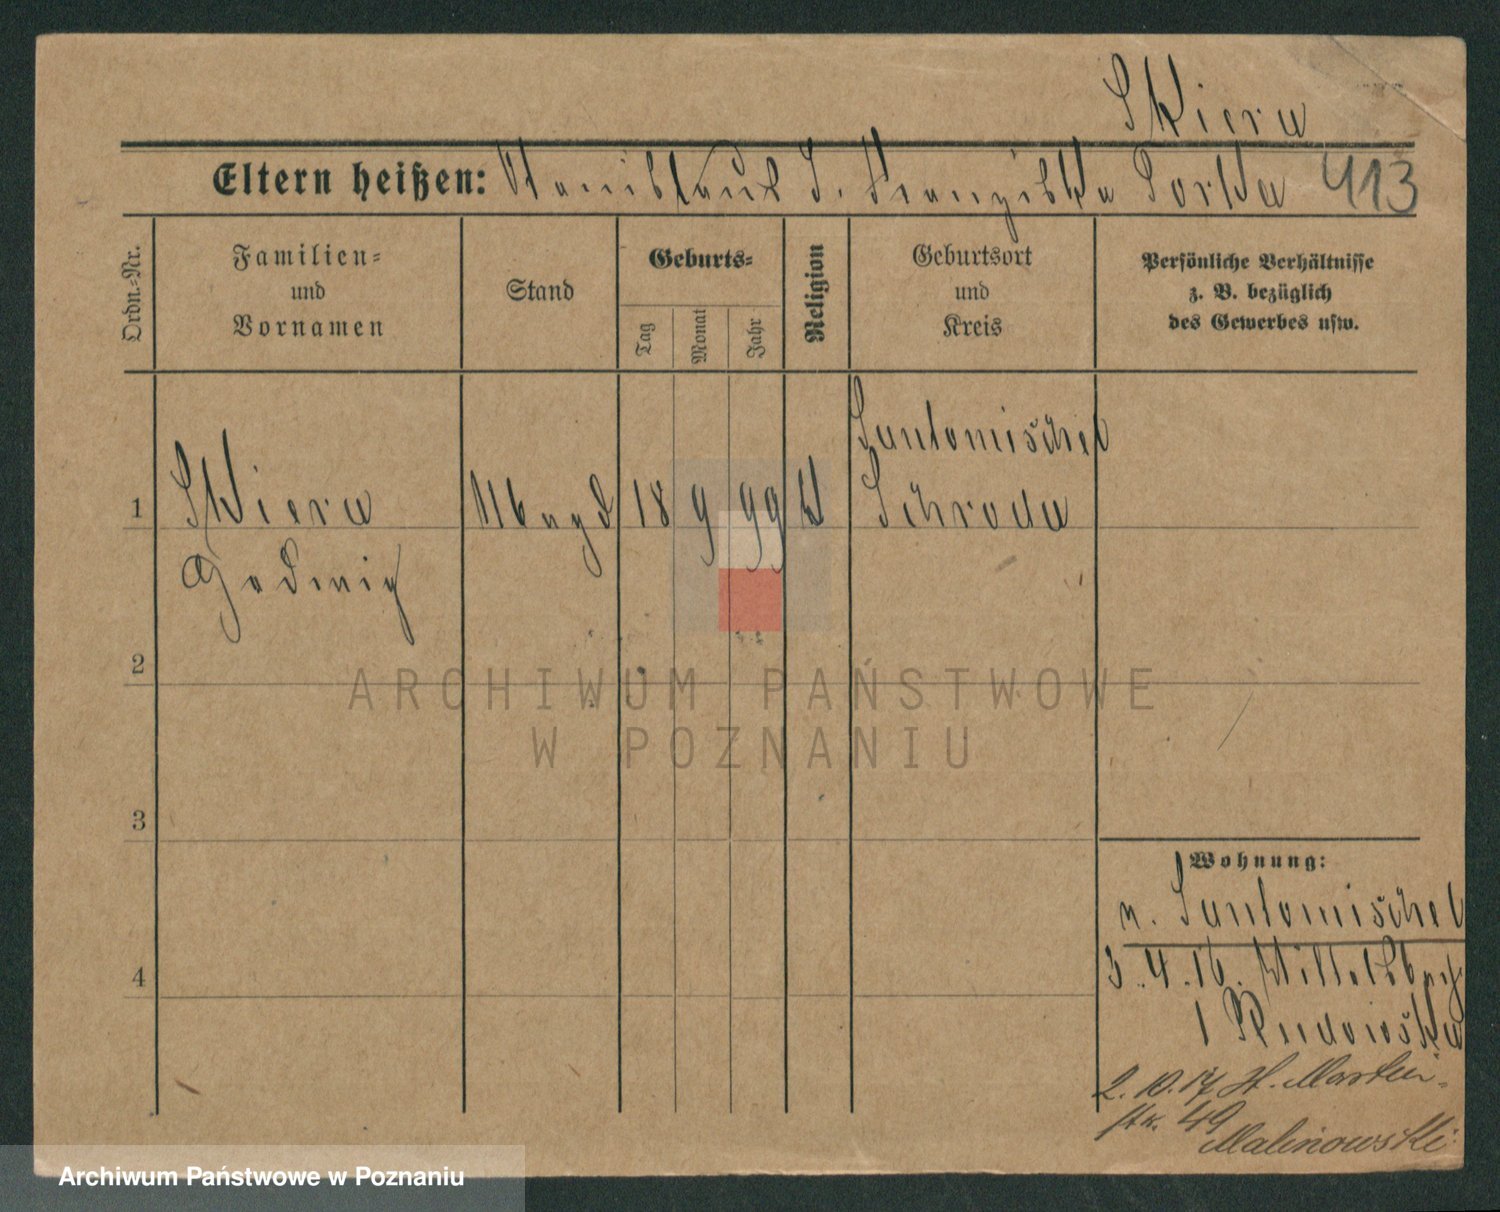 Skiera
Eltern heißen: Stanislaus u. Franziska Sorka 413
Ordn.-Nr.
Familien-
und
Vornamen
Stand
Geburts-
Tag
Monat
Jahr
Religion
Geburtsort
und
Kreis
Persönliche Verhältnisse
z. B. bezüglich
des Gewerbes usw.
Santomischel
1 Skiera Magd 18 9 99 k Schroda
Hedwig
2
ARCHIWUM PAŃSTWOWE
W POZNANIU
3
Wohnung:
n. Santomischel
4
3.4.16.
1
2.10.17 St. Martin-
str. 49
Malinowski
Archiwum Państwowe w Poznaniu